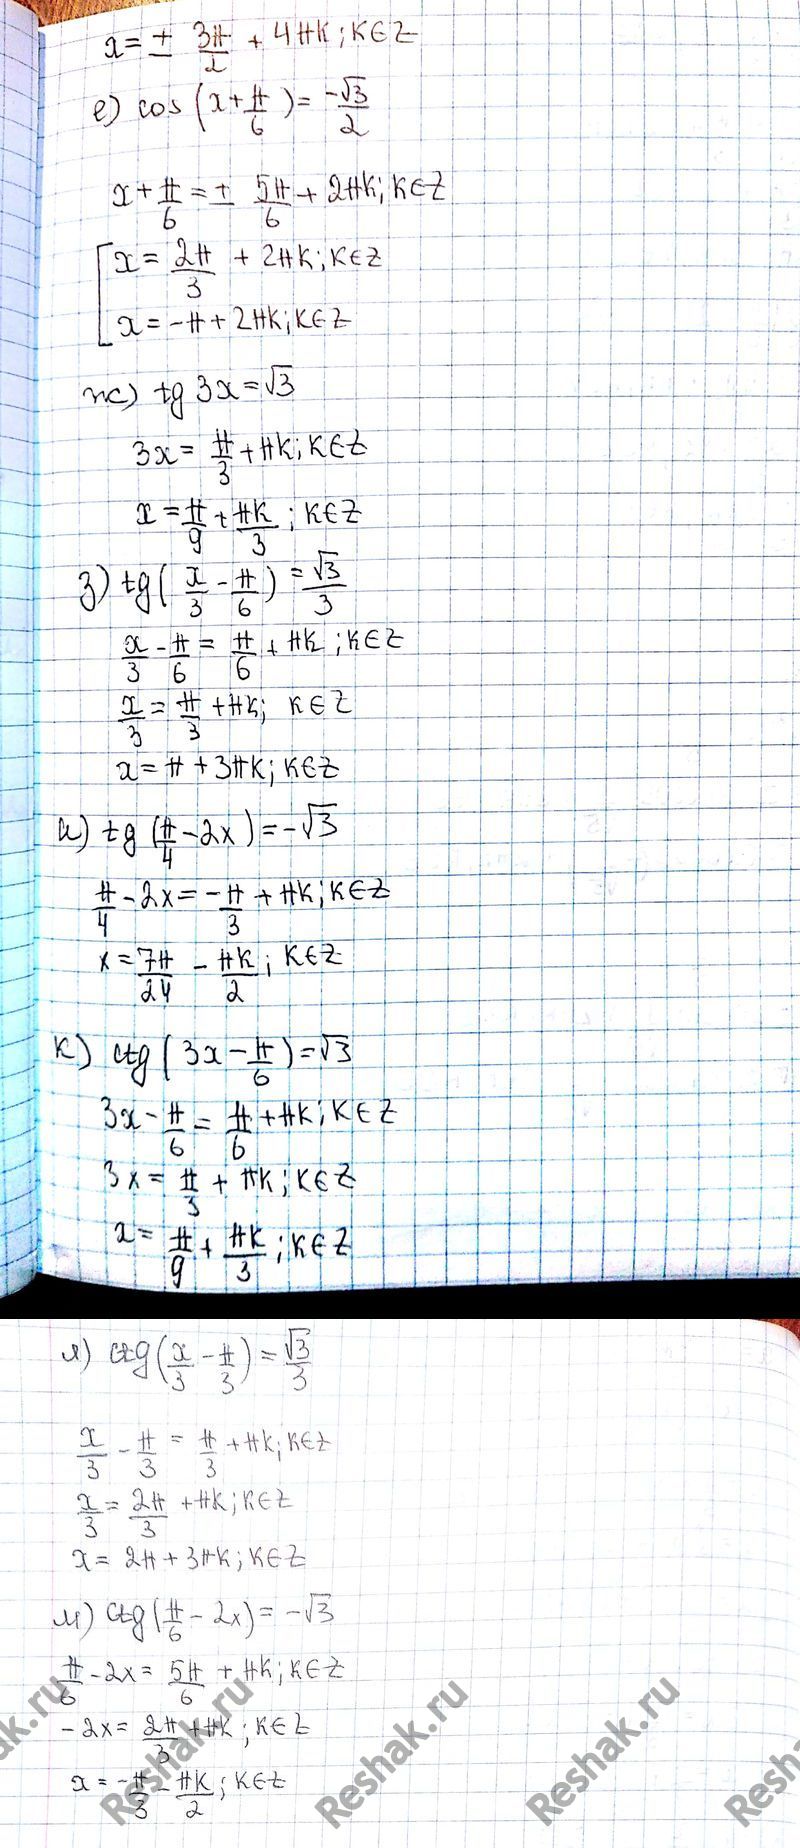 x = ± 3π/2 + 4πk; k∈Z
е) cos (x + π/6) = -√3/2
x + π/6 = ± 5π/6 + 2πk; k∈Z
[ x = 2π/3 + 2πk; k∈Z
x = -π + 2πk; k∈Z
ж) tg 3x = √3
3x = π/3 + πk; k∈Z
x = π/9 + πk/3; k∈Z
з) tg( x/3 - π/6 ) = √3/3
x/3 - π/6 = π/6 + πk; k∈Z
x/3 = π/3 + πk; k∈Z
x = π + 3πk; k∈Z
и) tg (π/4 - 2x) = -√3
π/4 - 2x = -π/3 + πk; k∈Z
x = 7π/24 - πk/2; k∈Z
к) ctg( 3x - π/6 ) = √3
3x - π/6 = π/6 + πk; k∈Z
3x = π/3 + πk; k∈Z
x = π/9 + πk/3; k∈Z
л) ctg (x/3 - π/3) = √3/3
x/3 - π/3 = π/3 + πk; k∈Z
x/3 = 2π/3 + πk; k∈Z
x = 2π + 3πk; k∈Z
м) ctg (π/6 - 2x) = -√3
π/6 - 2x = 5π/6 + πk; k∈Z
-2x = 2π/3 + πk; k∈Z
x = -π/3 - πk/2; k∈Z
ak.ru
Reshak.ru
Reshak.ru
Reshak.ru
Resh